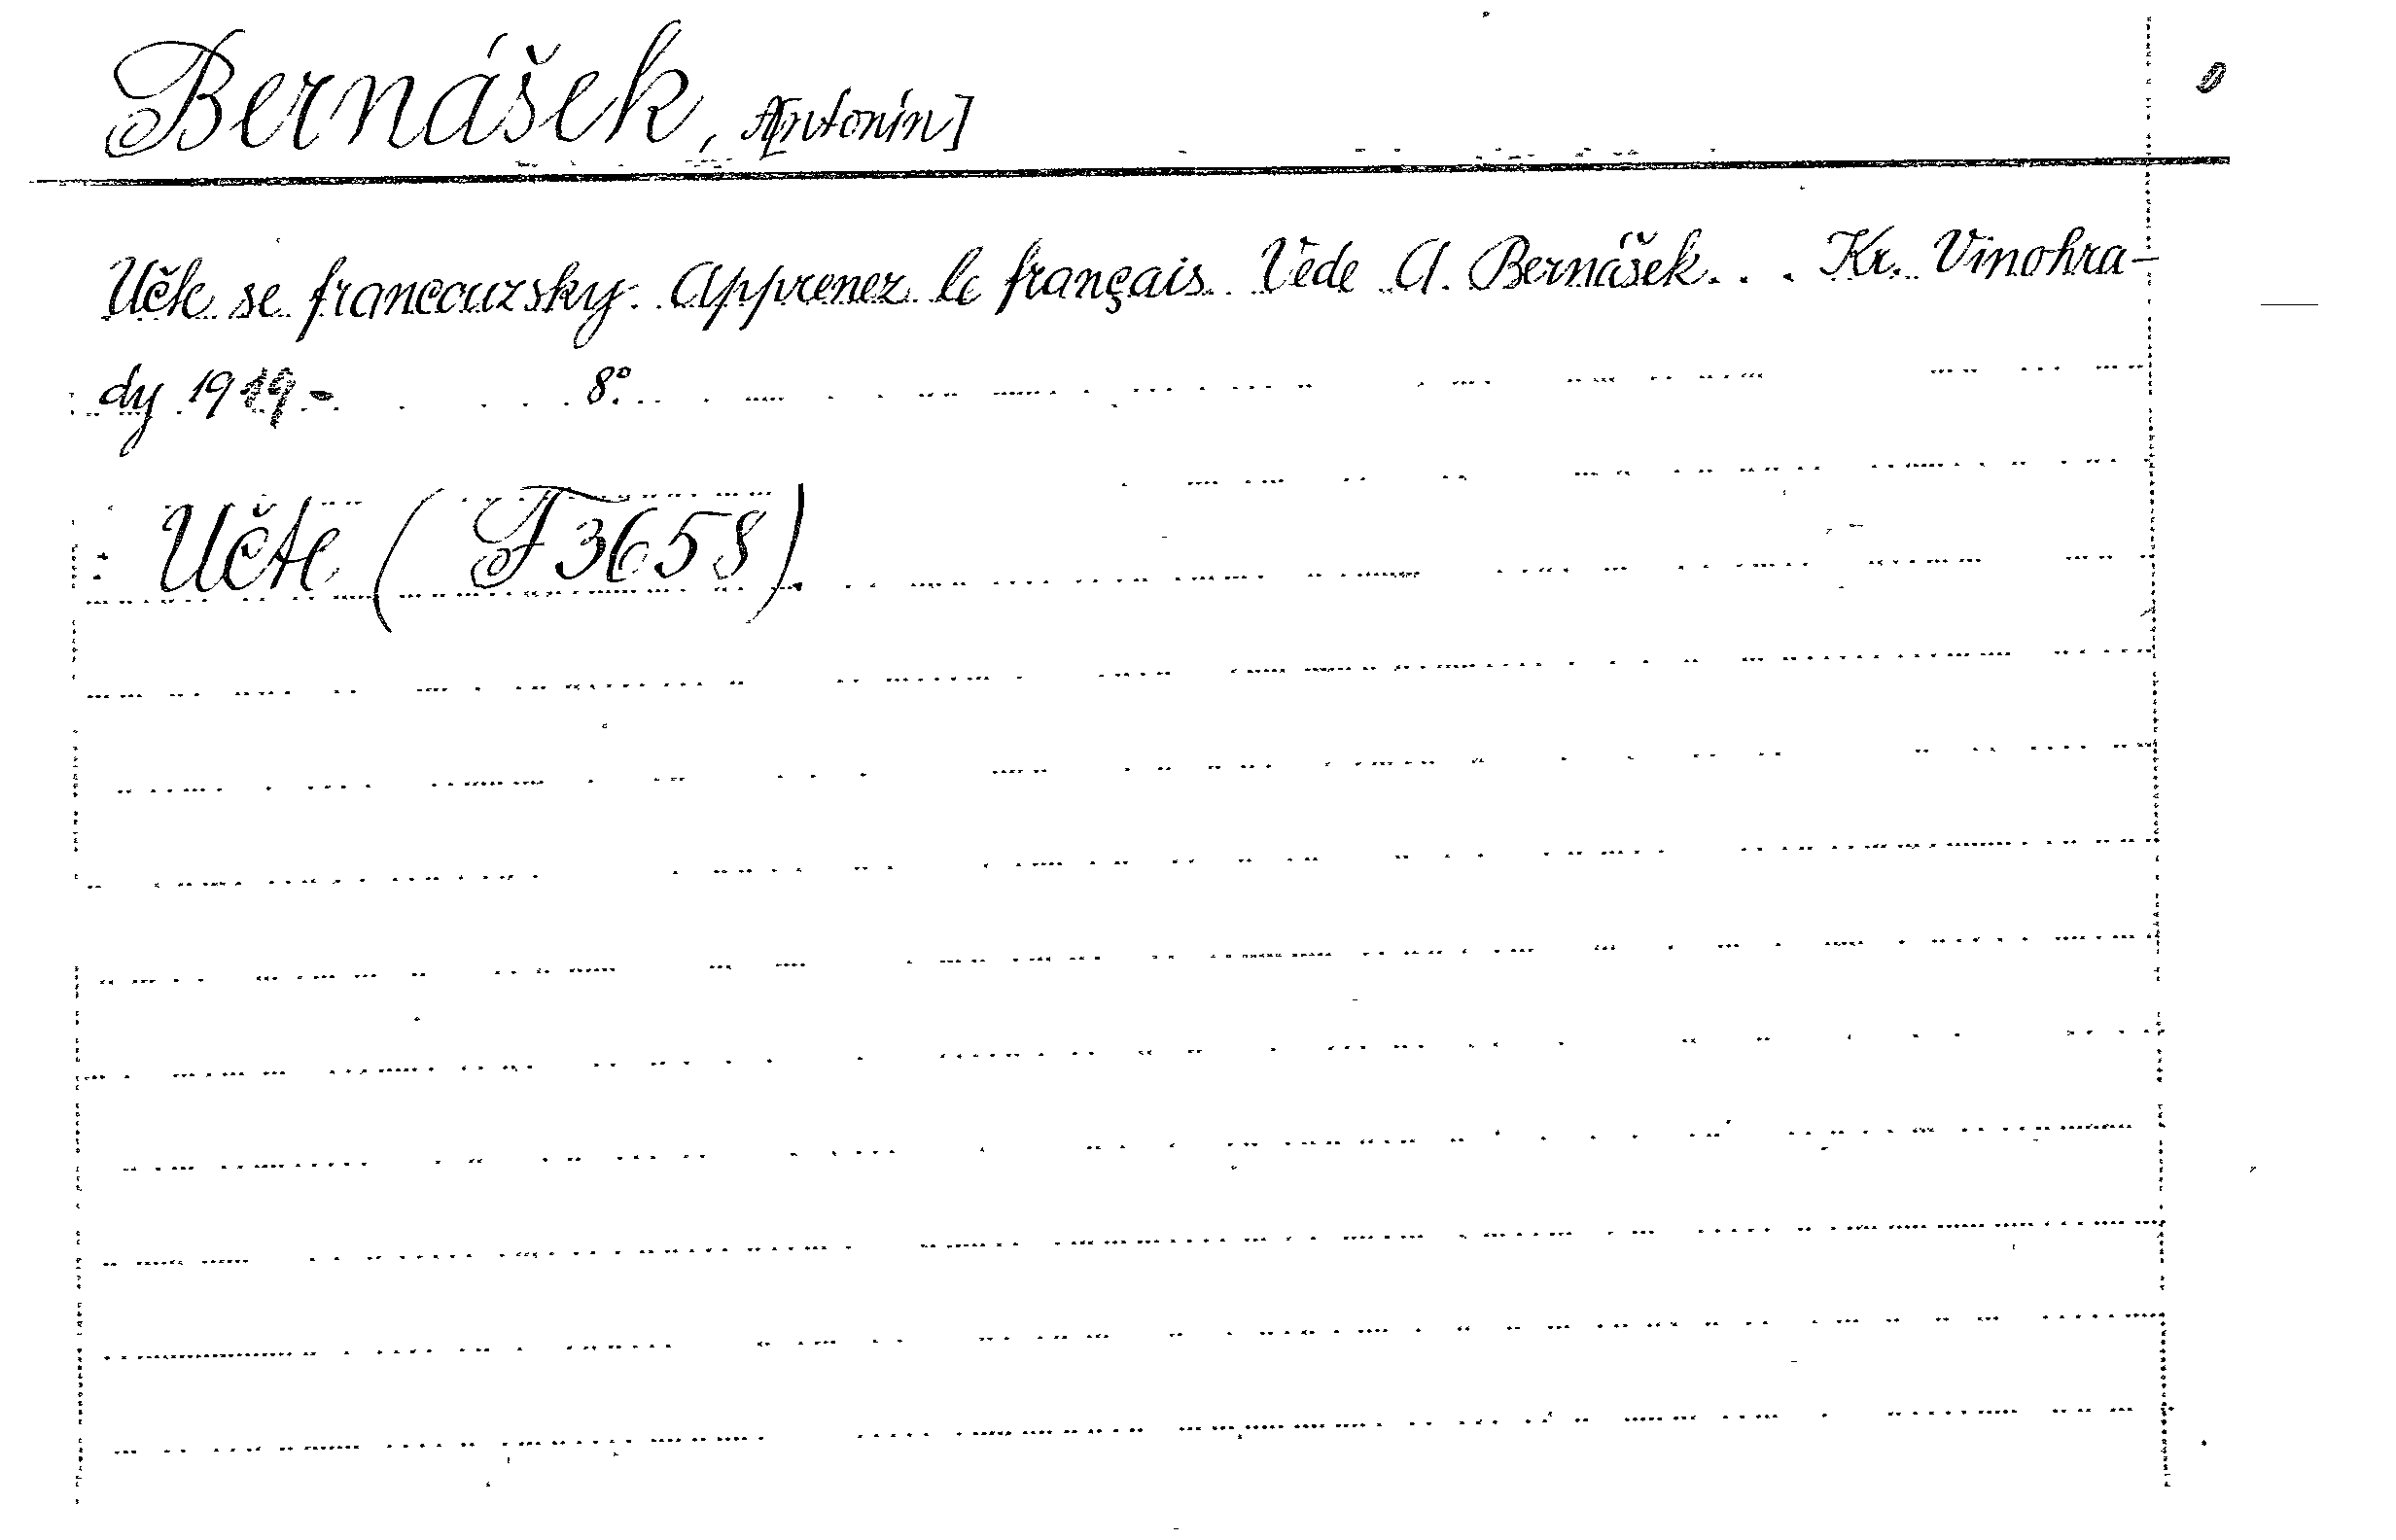 Bernášek, A[ntonín]
Učte se francouzsky. Apprenez le français. Vede A. Bernášek... Kr. Vinohra-
dy 1919- 8°.
: Učte (F 3658).